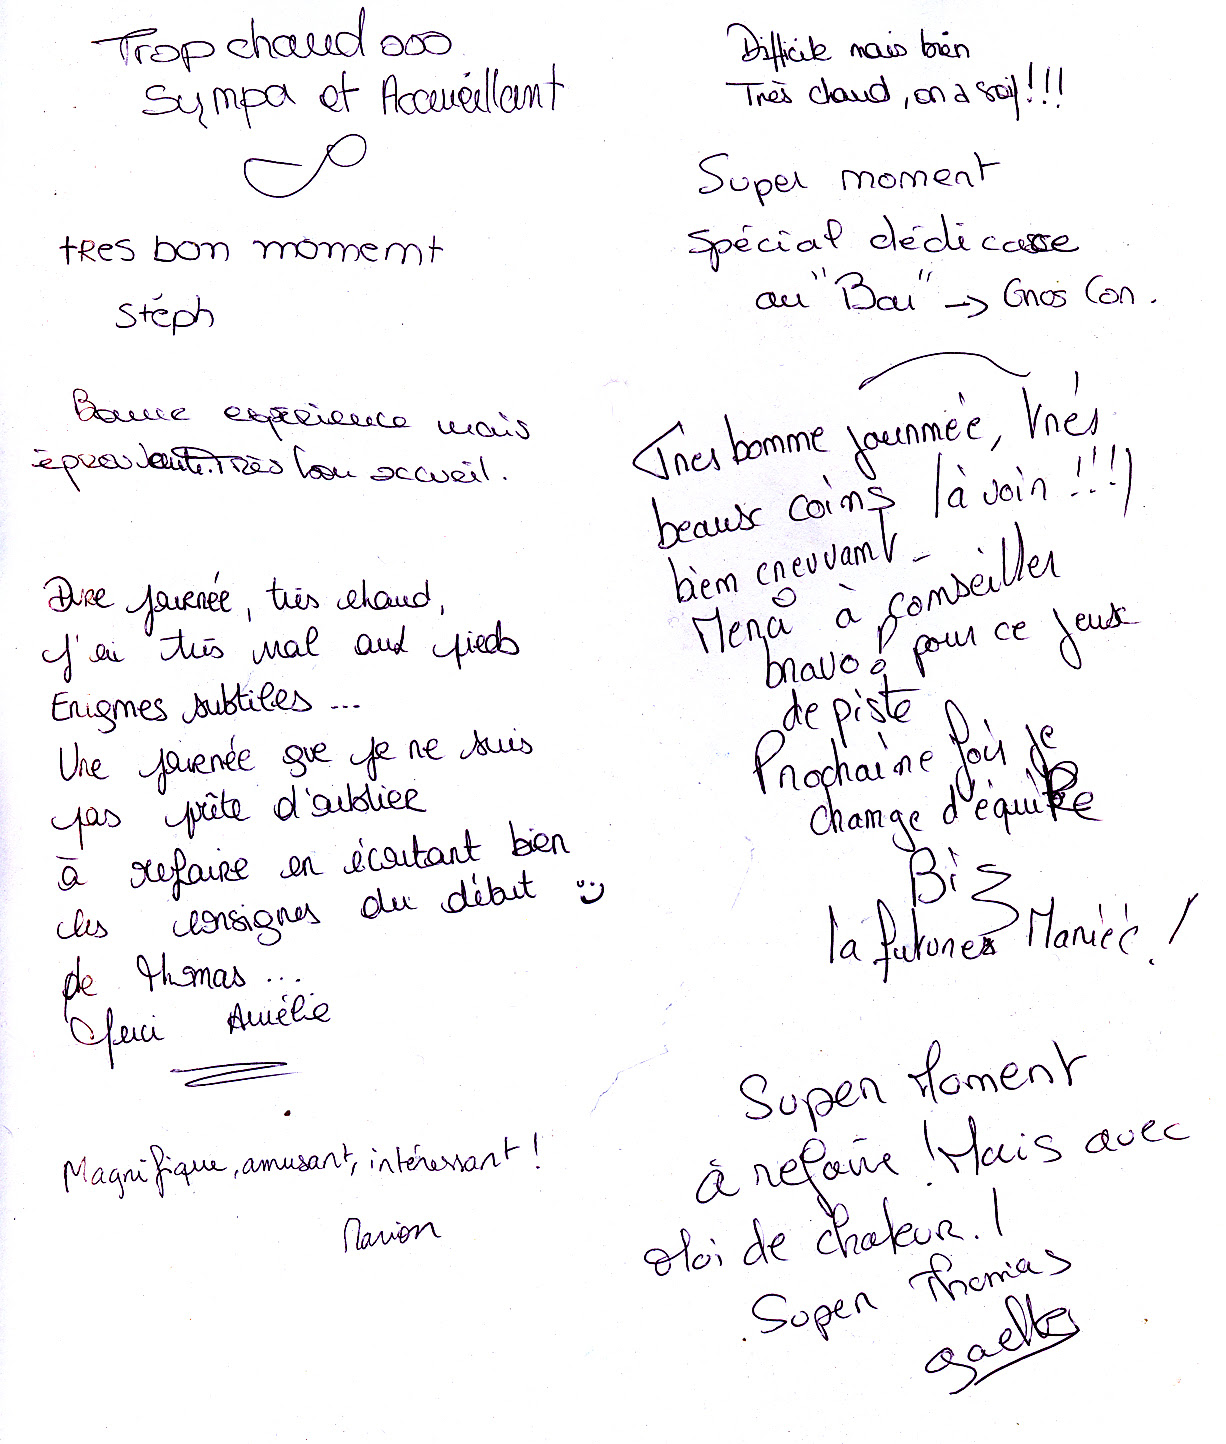 Trop chaud ooo
Sympa et Accueillant
tres bon moment
Stéph
Bonne expérience mais
éprouvante. Très bon accueil.
Dure journée, très chaud,
j'ai très mal aux pieds
Enigmes subtiles ...
Une journée que je ne suis
pas prête d'oublier
à refaire en écoutant bien
les consignes du début :)
de Thomas ...
Merci Aurélie
Magnifique, amusant, intéressant !
Marion
Difficile mais bien
Très chaud, on a soif !!!
Super moment
Spécial dédicasse
au "Bou" -> Gros Con.
Tres bonne journnée, très
beaux coins (à voir !!!)
bien crevvant -
Merci à conseiller
bravo pour ce jeux
de piste
Prochaine fois je
change d'équipe
Bis
la future Mariée !
Super Moment
à refaire ! Mais avec
moi de chaleur. !
Super Thomas
Gaelle